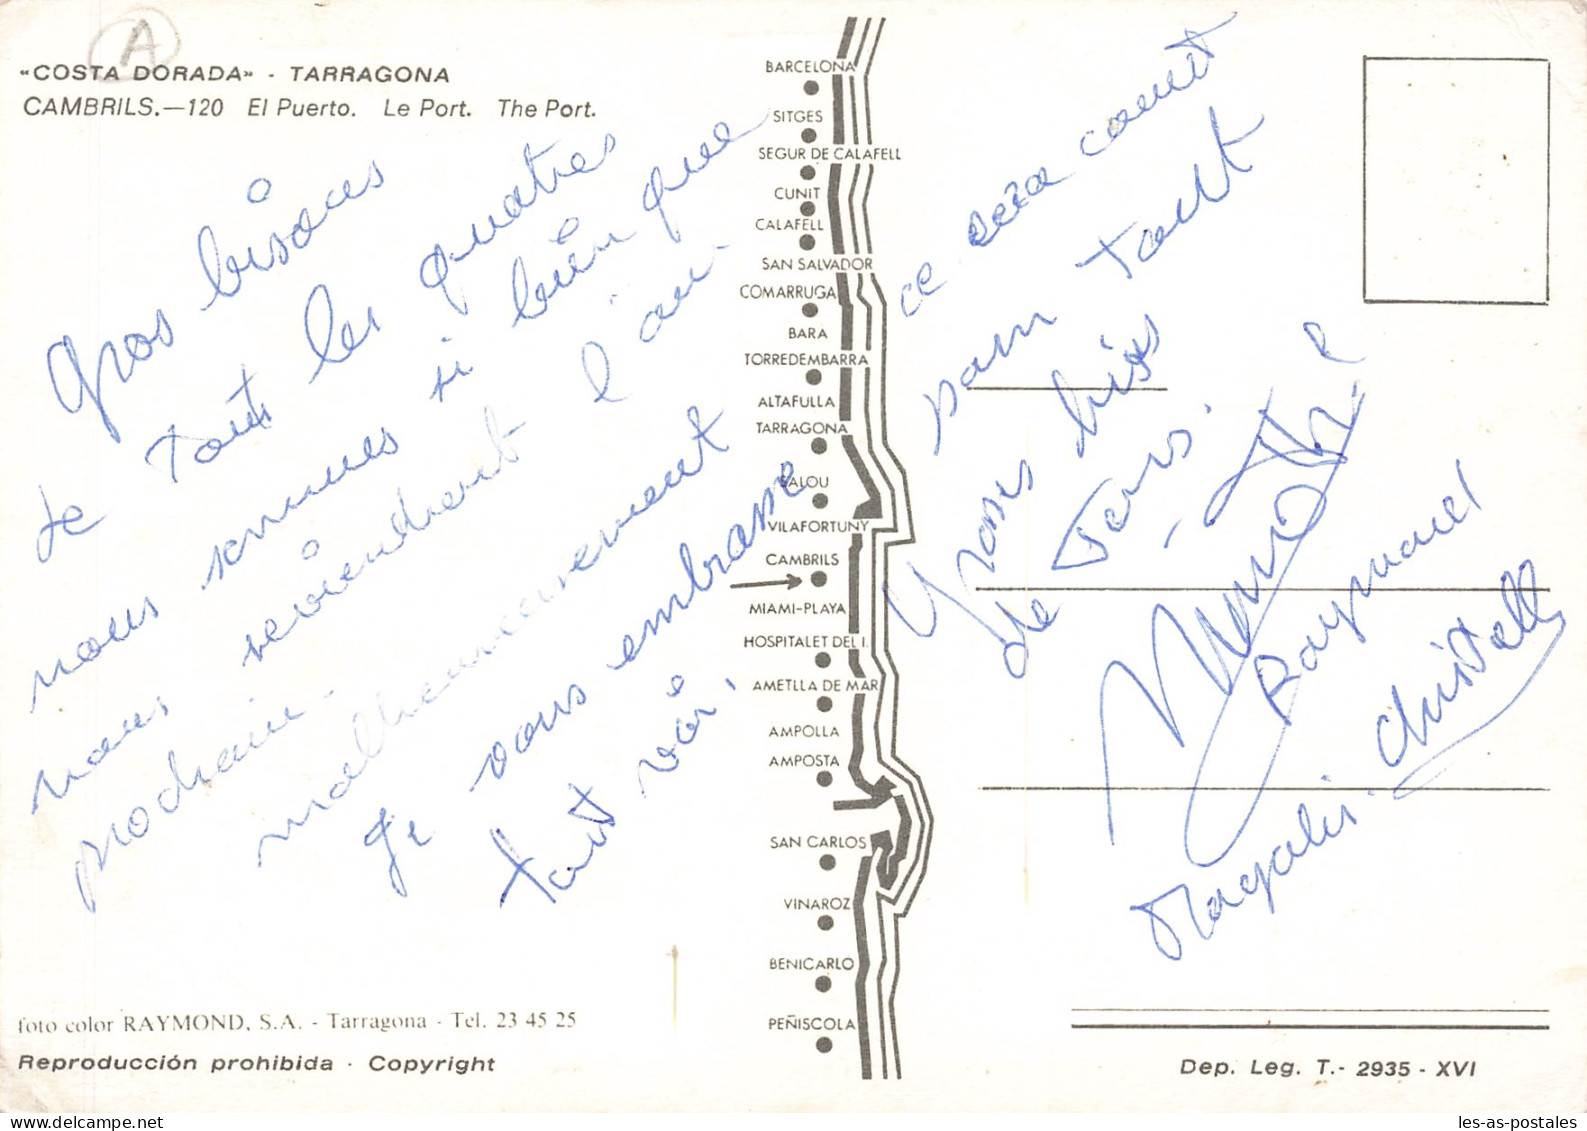 A
«COSTA DORADA» - TARRAGONA
CAMBRILS.—120 El Puerto. Le Port. The Port.
Gros bisous
de tout les quatres
nous sommes si bien que
nous reviendront l'an
prochain.
malheureusement
je vous embrasse
tout
ce sera court
pour tout
Gros bises
de
Raymond
Magalis. Christelle
BARCELONA
SITGES
SEGUR DE CALAFELL
CUNIT
CALAFELL
SAN SALVADOR
COMARRUGA
BARA
TORREDEMBARRA
ALTAFULLA
TARRAGONA
SALOU
VILAFORTUNY
CAMBRILS
MIAMI-PLAYA
HOSPITALET DEL I.
AMETLLA DE MAR
AMPOLLA
AMPOSTA
SAN CARLOS
VINAROZ
BENICARLO
PEÑISCOLA
foto color RAYMOND, S.A. - Tarragona - Tel. 23 45 25
Reproducción prohibida · Copyright
Dep. Leg. T.- 2935 - XVI
les-as-postales
delcampe.net